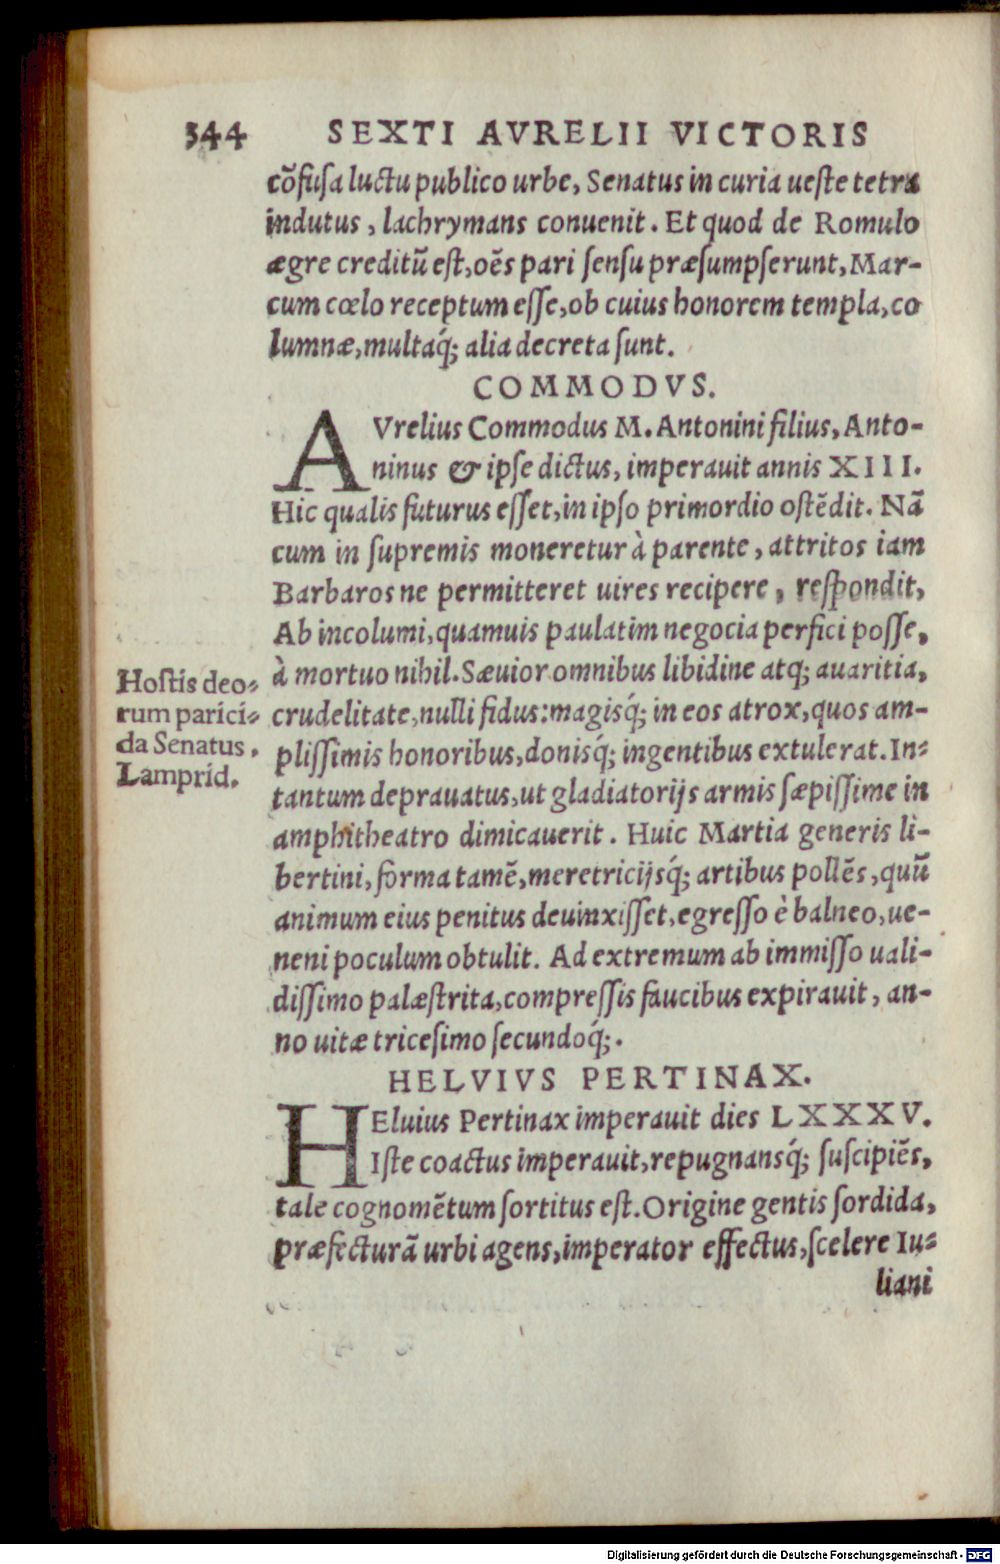 344 SEXTI AVRELII VICTORIS
cõfusa luctu publico urbe, Senatus in curia ueste tetra
indutus, lachrymans conuenit. Et quod de Romulo
ægre creditũ est, oẽs pari sensu præsumpserunt, Mar-
cum cœlo receptum esse, ob cuius honorem templa, co
lumnæ, multaq́; alia decreta sunt.
COMMODVS.
AVrelius Commodus M. Antonini filius, Anto-
ninus & ipse dictus, imperauit annis XIII.
Hic qualis futurus esset, in ipso primordio ostẽdit. Nã
cum in supremis moneretur à parente, attritos iam
Barbaros ne permitteret uires recipere, respondit,
Ab incolumi, quamuis paulatim negocia perfici posse,
à mortuo nihil. Sæuior omnibus libidine atq; auaritia,
crudelitate, nulli fidus: magisq́; in eos atrox, quos am-
plissimis honoribus, donisq́; ingentibus extulerat. In-
tantum deprauatus, ut gladiatorijs armis sæpissime in
amphitheatro dimicauerit. Huic Martia generis li-
bertini, forma tamẽ, meretricijsq́; artibus pollẽs, quũ
animum eius penitus deuinxisset, egresso è balneo, ue-
neni poculum obtulit. Ad extremum ab immisso uali-
dissimo palæstrita, compressis faucibus expirauit, an-
no uitæ tricesimo secundoq́;.
Hostis deo-
rum parici-
da Senatus.
Lamprid.
HELVIVS PERTINAX.
HEluius Pertinax imperauit dies LXXXV.
Iste coactus imperauit, repugnansq́; suscipiẽs,
tale cognomẽtum sortitus est. Origine gentis sordida,
præfecturã urbi agens, imperator effectus, scelere Iu-
liani
Digitalisierung gefördert durch die Deutsche Forschungsgemeinschaft - DFG